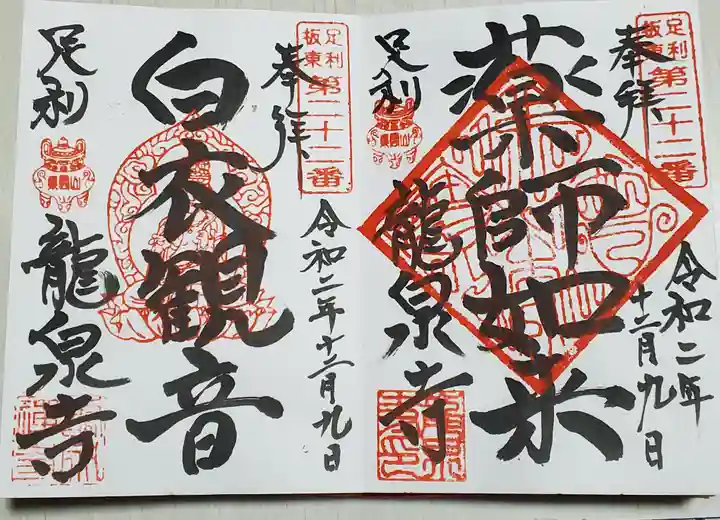 足利
板東
第二十二番
奉拝
令和二年
十二月九日
薬師如来
足利
龍泉寺
足利
板東
第二十二番
奉拝
令和二年十二月九日
白衣観音
足利
龍泉寺